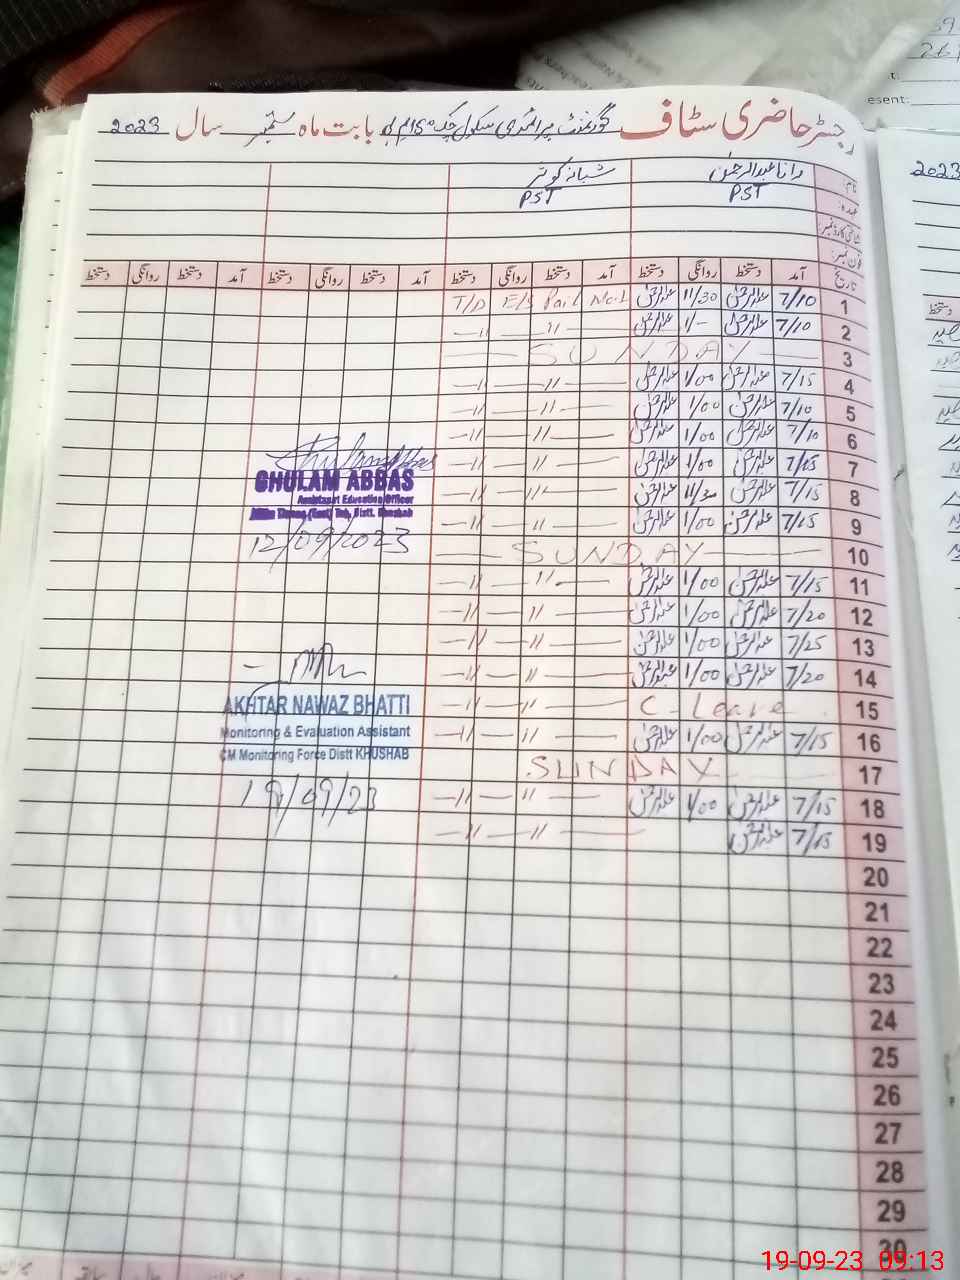 رجسٹر حاضری سٹاف گورنمنٹ پرائمری سکول چک بابت ماہ ستمبر سال 2023
نام: رانا عبدالرحمٰن شبانہ کوثر
عہدہ: PST PST
شناختی کارڈ نمبر:
فون نمبر:
تاریخ آمد دستخط روانگی دستخط آمد دستخط روانگی دستخط آمد دستخط روانگی دستخط آمد دستخط روانگی دستخط
1 7/10 عبدالرحمٰن 11/30 عبدالرحمٰن No.1 T/D
2 7/10 عبدالرحمٰن 1/- عبدالرحمٰن — // — // —
3 SUNDAY
4 7/15 عبدالرحمٰن 1/00 عبدالرحمٰن — // — // —
5 7/10 عبدالرحمٰن 1/00 عبدالرحمٰن — // — // —
6 7/10 عبدالرحمٰن 1/00 عبدالرحمٰن — // — // —
7 7/15 عبدالرحمٰن 1/00 عبدالرحمٰن — // — // —
8 7/15 عبدالرحمٰن 11/30 عبدالرحمٰن — // — // —
9 7/15 عبدالرحمٰن 1/00 عبدالرحمٰن — // — // —
10 SUNDAY
11 7/15 عبدالرحمٰن 1/00 عبدالرحمٰن — // — // —
12 7/20 عبدالرحمٰن 1/00 عبدالرحمٰن — // — // —
13 7/25 عبدالرحمٰن 1/00 عبدالرحمٰن — // — // —
14 7/20 عبدالرحمٰن 1/00 عبدالرحمٰن — // — // —
15 C-Leave — // — // —
16 7/15 عبدالرحمٰن 1/00 عبدالرحمٰن — // — // —
17 SUNDAY
18 7/15 عبدالرحمٰن 1/00 عبدالرحمٰن — // — // —
19 7/15 عبدالرحمٰن — // — // —
20
21
22
23
24
25
26
27
28
29
30
GHULAM ABBAS
Assistant Education Officer
(East) Teh, Distt. Khushab
12/09/2023
AKHTAR NAWAZ BHATTI
Monitoring & Evaluation Assistant
CM Monitoring Force Distt KHUSHAB
19/09/23
esent:
2023
دستخط
19-09-23 09:13